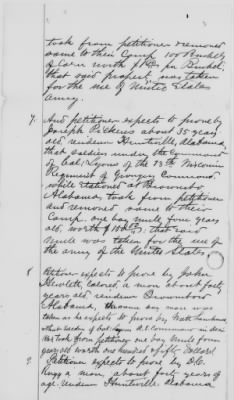 took from petitioner & removed
same to their Camp 100 Bushels
of Corn worth per Bushel
that said property was taken
for the use of United States
army.
7. And petitioner expects to prove by
Joseph Pickens about 35 years
old, resident Huntsville, Alabama,
that Soldiers under the Command
of Col. Lyons of the 13th Wisconsin
Regiment of Command
while stationed at Brownsboro
Alabama, took from petitioner
and removed same to their
Camp one bay mule, four years
old, worth that said
Mule was taken for the use of
the army of the United States.
8 Petitioner expects to prove by John
Hewlett, Colored, a man about forty
years old, resident Brownsboro
Alabama,
taken as he expects to prove by
that
took from petitioner one bay Mule four
years old worth one hundred & fifty dollars.
9. Petitioner expects to prove by
a man, about forty years of
age resident Huntsville Alabama